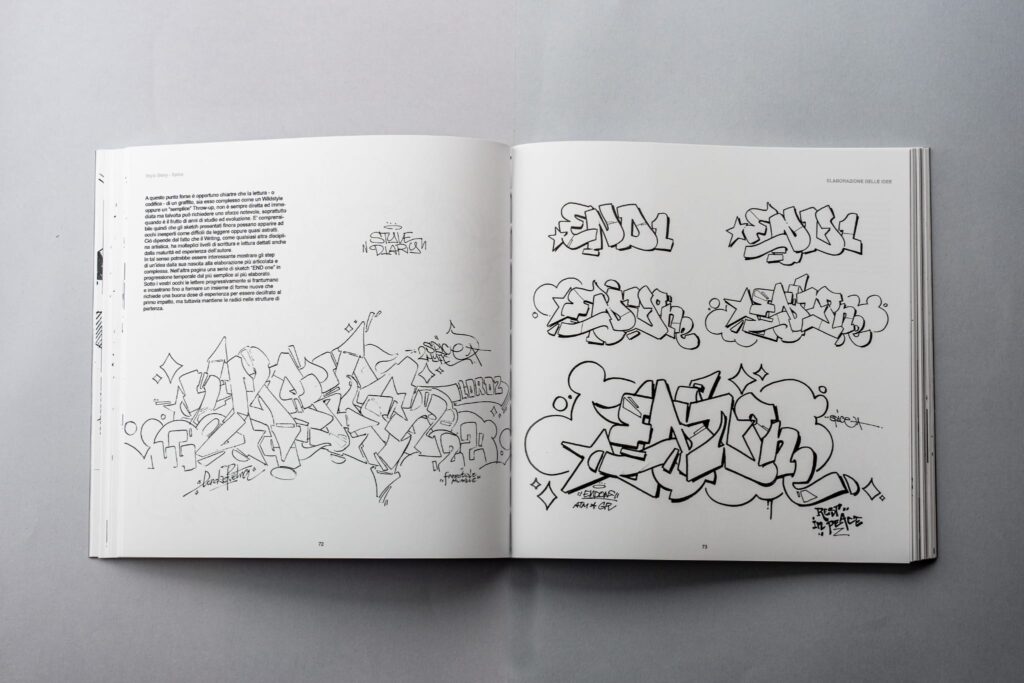 Style Diary -
A questo punto forse è opportuno chiarire che la lettura - o
codifica - di un graffito, sia esso complesso come un Wildstyle
oppure un "semplice" Throw-up, non è sempre diretta ed imme-
diata ma talvolta può richiedere uno sforzo notevole, soprattutto
quando è il frutto di anni di studio ed evoluzione. E' comprensi-
bile quindi che gli sketch presentati finora possano apparire ad
occhi inesperti come difficili da leggere oppure quasi astratti.
Ciò dipende dal fatto che il Writing, come qualsiasi altra discipli-
na artistica, ha molteplici livelli di scrittura e lettura dettati anche
dalla maturità ed esperienza dell'autore.
In tal senso potrebbe essere interessante mostrare gli step
di un'idea dalla sua nascita alla elaborazione più articolata e
complessa. Nell'altra pagina una serie di sketch "END one" in
progressione temporale dal più semplice al più elaborato.
Sotto i vostri occhi le lettere progressivamente si frantumano
e incastrano fino a formare un insieme di forme nuove che
richiede una buona dose di esperienza per essere decifrato al
primo impatto, ma tuttavia mantiene le radici nelle strutture di
partenza.
STYLE
"DIARY"
LORDZ
72
ELABORAZIONE DELLE IDEE
END1
END1
"ENDONE"
REST
IN PEACE
73